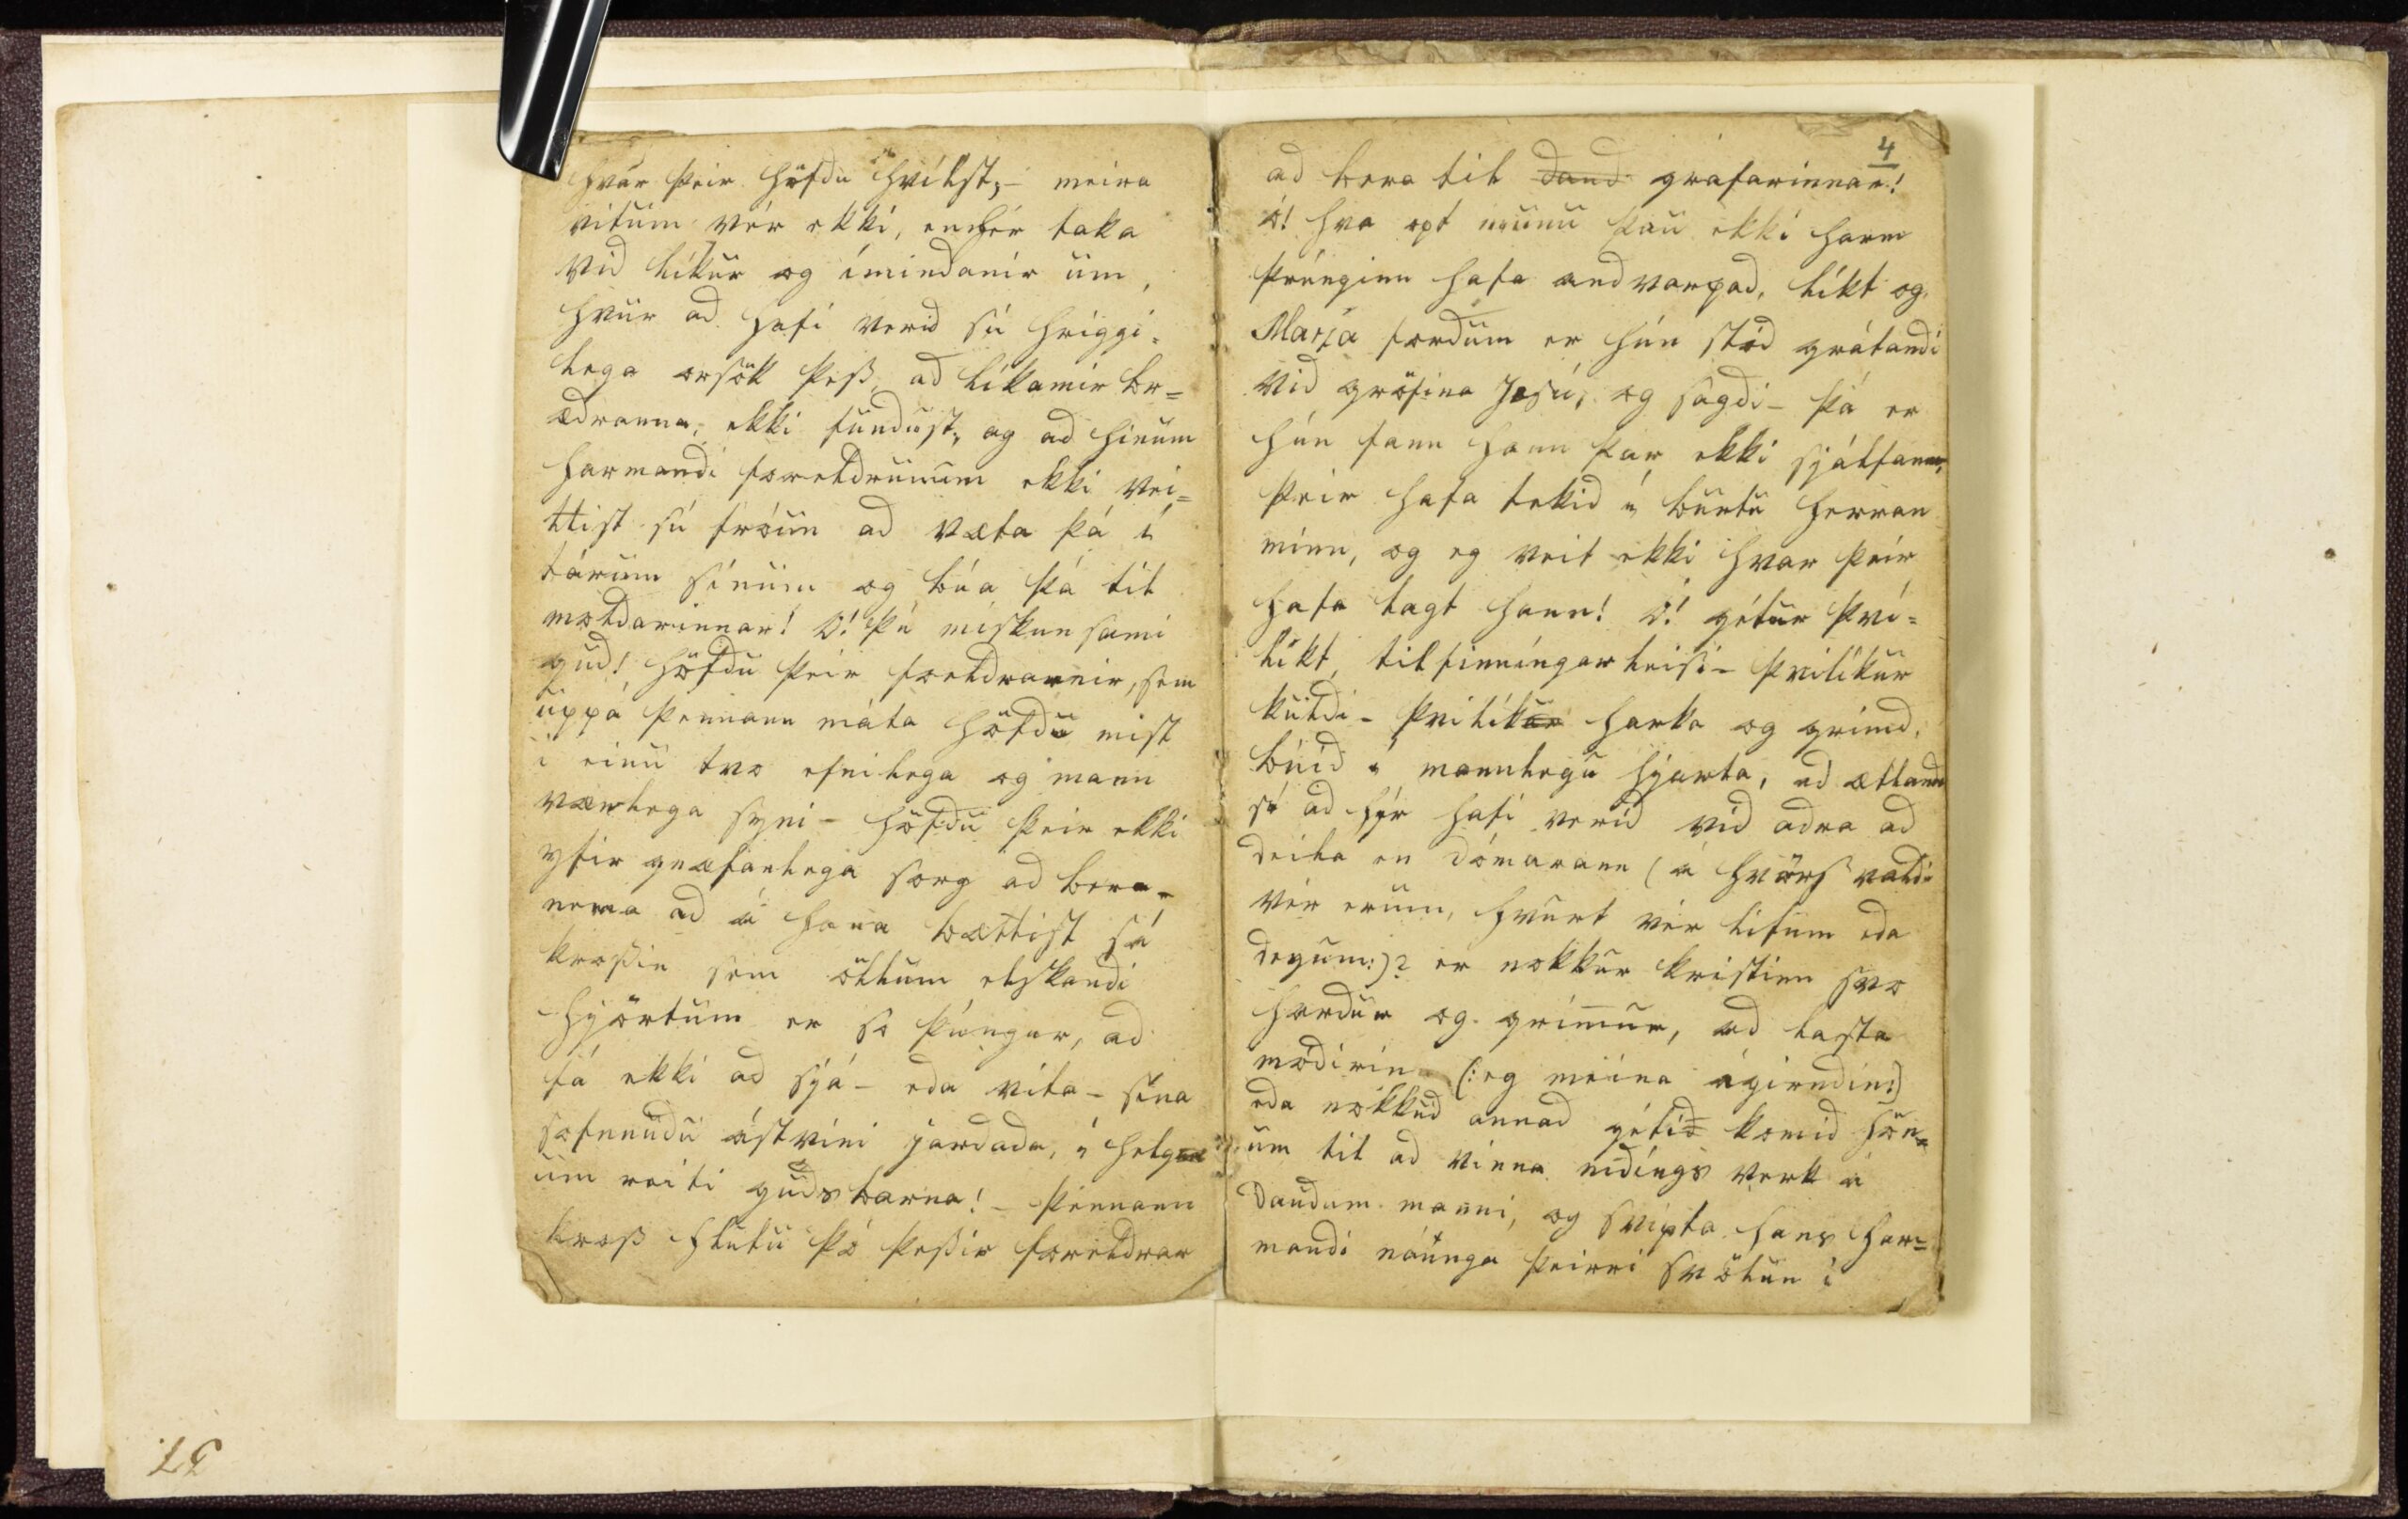 hvar þeir höfdu hvílst; – meira
vitum vér ekki, enn hér taka
vid líkur og ímindanir um,
hvur ad hafi verid sú hriggi-
lega orsök þess, ad líkamir br=
ædranna, ekki fundust; og ad hinum
harmandi foreldrunum ekki vei=
ttist sú fróun ad væta þá í
tárum sínum og búa þá til
moldarinnar! Ó! þú miskunsami
gud! höfdu þeir foreldrarnir, sem
uppá þennann máta höfdu mist
í einu tvo efnilega og mann
vænlega syni – höfdu þeir ekki
yfir gnæfanlega sorg ad bera –
nema ad á hana bættist sá
krossin sem öllum elskandi
hjörtum er so þúngur, ad
fá ekki ad sjá – eda vita – sína
sofnudu ástvini jardada, í helg
um reiti guds barna! – þennann
kross hlutu þó þessir foreldrar
4
ad bera til daud grafarinnar!
ó! hva opt munu þau ekki harm
þrúnginn hafa andvarpad, líkt og
Marja fordum er hún stód grátandi
vid gröfina Jesú, og sagdi – þá er
hún fann hann þar ekki sjálfann,
þeir hafa tekid í burtu herran
minn, og eg veit ekki hvar þeir
hafa lagt hann! Ó! gétur því=
líkt, tilfinníngarleisi – þvílíkur
kuldi – þvilíkur harka og grimd,
búid í mannlegu hjarta, ad ætlandi
sé ad hér hafi verid vid adra ad
deila en dómarann (á hvörs valdi
vér erum, hvurt vér lifum eda
deyum:)? er nokkur kristinn svo
hardur og grimmur, ad lasta
módirin – (:eg meina ágirndin:)
eda nokkud annad gétid komid hön=
um til ad vinna nídíngs verk á
daudum manni, og svipta hans har=
mandi náúnga þeirri svölun í
37.